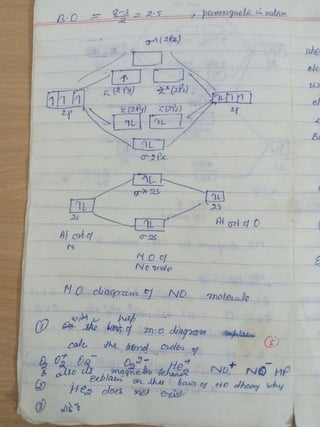 B.O = 8-3/2 = 2.5 , paramagnetic in nature
σ*(2Pz)
π*(2Py) π*(2Px)
2p 2p
π(2Py) π(2Px)
σ2Pz
σ*2S
2s 2s
σ2s
At orb of N
At orb of O
M.O of
NO mole
M.O diagram of NO molecule
① with help
the basis of m.o diagram explain
calc the bond order of
O2 O2+ O2- O2 2- He+ NO+ NO- HF
& also its magnetic behavior
② explain on the basis of MO theory why
He2 does not exist
③